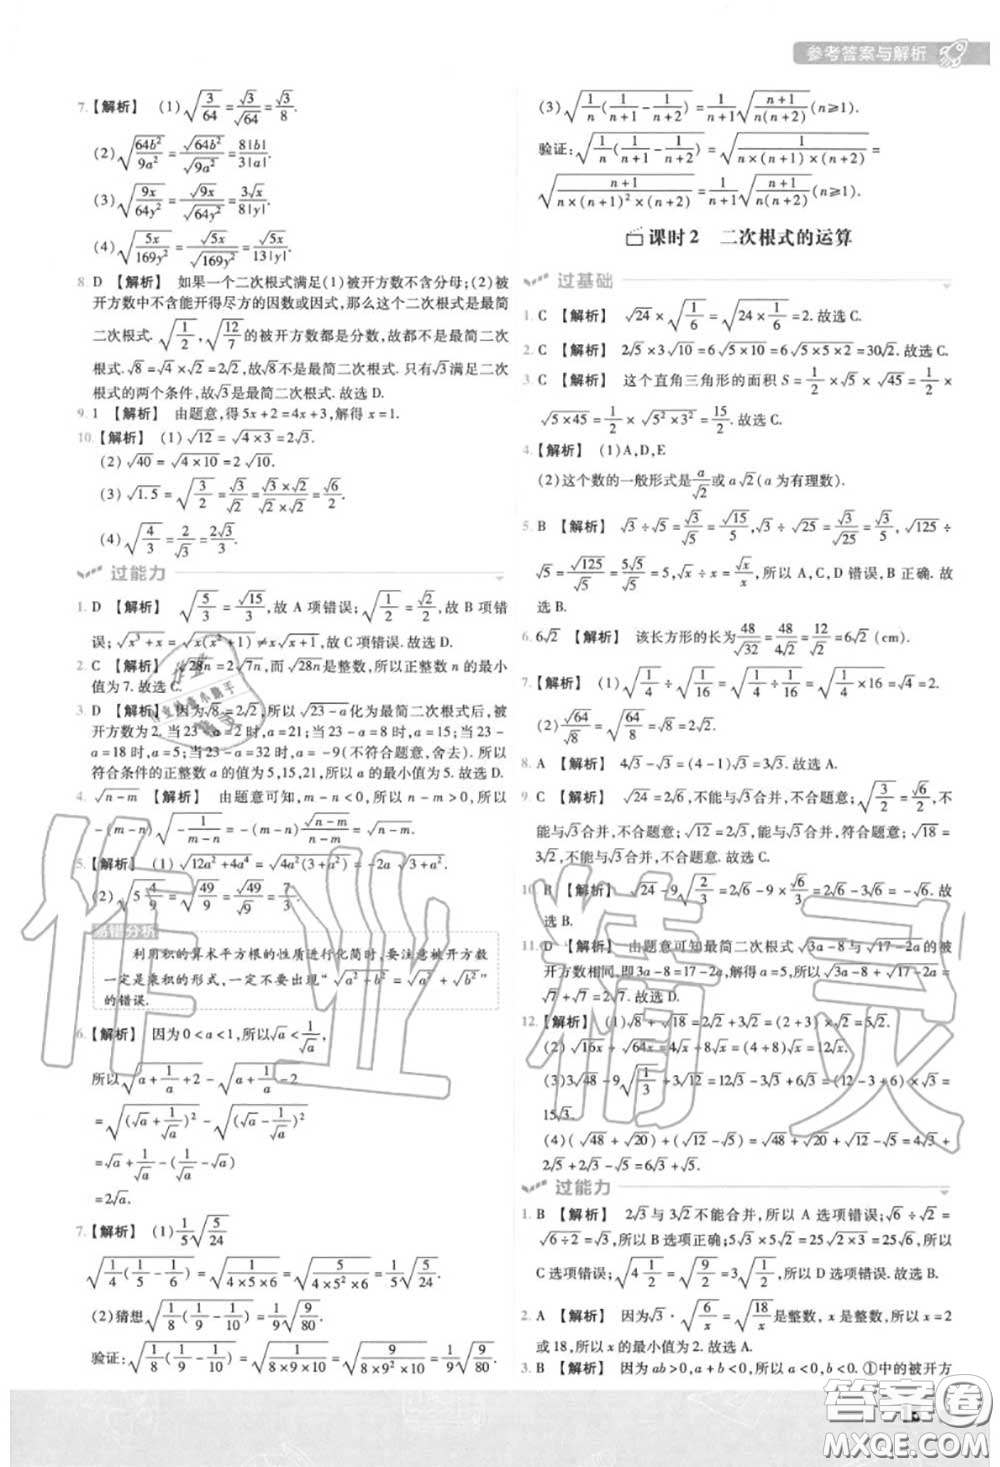 参考答案与解析
7.【解析】 (1)√(3/64)=√3/√64=√3/8.
(2)√(64b²/9a²)=√(64b²)/√(9a²)=8|b|/3|a|.
(3)√(9x/64y²)=√(9x)/√(64y²)=3√x/8|y|.
(4)√(5x/169y²)=√(5x)/√(169y²)=√(5x)/13|y|.
8 D 【解析】 如果一个二次根式满足(1)被开方数不含分母;(2)被
开方数中不含能开得尽方的因数或因式,那么这个二次根式是最简
二次根式.√(1/2),√(12/7)的被开方数都是分数,故都不是最简二次根
式.√8=√4×√2=2√2,故√8不是最简二次根式.只有√3满足二次
根式的两个条件,故√3是最简二次根式.故选D.
9. 1 【解析】 由题意,得5x+2=4x+3,解得x=1.
10.【解析】 (1)√12=√(4×3)=2√3.
(2)√40=√(4×10)=2√10.
(3)√1.5=√(3/2)=√3/√2=(√3×√2)/(√2×√2)=√6/2.
(4)√(4/3)=2/√3=2√3/3.
过能力
1. D 【解析】 √(5/3)=√15/3,故A项错误;√(1/2)=√2/2,故B项错
误;√(x³+x)=√(x(x²+1))≠x√(x+1),故C项错误.故选D.
2. C 【解析】 √(28n)=2√(7n),而√(28n)是整数,所以正整数n的最小
值为7.故选C.
3. D 【解析】 因为√8=2√2,所以√(23-a)化为最简二次根式后,被
开方数为2.当23-a=2时,a=21;当23-a=8时,a=15;当23-
a=18时,a=5;当23-a=32时,a=-9(不符合题意,舍去).所以
符合条件的正整数a的值为5,15,21,所以a的最小值为5.故选D.
4. √(n-m) 【解析】 由题意可知,m-n<0,所以n-m>0,所以
-(m-n)√(-1/(m-n))=-(m-n)·√(n-m)/(n-m)=√(n-m).
5.【解析】 (1)√(12a²+4a⁴)=√(4a²(3+a²))=-2a√(3+a²).
(2)√(5 4/9)=√(49/9)=√49/√9=7/3.
易错分析
利用积的算术平方根的性质进行化简时,要注意被开方数
一定是乘积的形式,一定不要出现“√(a²+b²)=√a²+√b²”
的错误.
6.【解析】 因为0<a<1,所以√a<1/√a,
所以√(a+1/a+2)-√(a+1/a-2)
=√((√a+1/√a)²)-√((√a-1/√a)²)
=√a+1/√a-(1/√a-√a)
=2√a.
7.【解析】 (1)1/5√(5/24)
√(1/4(1/5-1/6))=√(1/(4×5×6))=√(5/(4×5²×6))=1/5√(5/24).
(2)猜想√(1/8(1/9-1/10))=1/9√(9/80)
验证:√(1/8(1/9-1/10))=√(1/(8×9×10))=√(9/(8×9²×10))=1/9√(9/80).
(3)√(1/n(1/(n+1)-1/(n+2)))=1/(n+1)√((n+1)/(n(n+2)))(n≥1).
验证:√(1/n(1/(n+1)-1/(n+2)))=√(1/(n×(n+1)×(n+2)))=
√((n+1)/(n×(n+1)²×(n+2)))=1/(n+1)√((n+1)/(n(n+2)))(n≥1).
课时2 二次根式的运算
过基础
1. C 【解析】 √24×√(1/6)=√(24×1/6)=2.故选C.
2. C 【解析】 2√5×3√10=6√(5×10)=6√(5×5×2)=30√2.故选C.
3. C 【解析】 这个直角三角形的面积S=1/2×√5×√45=1/2×
√(5×45)=1/2×√(5²×3²)=15/2.故选C.
4.【解析】 (1)A,D,E
(2)这个数的一般形式是a/√2或a√2(a为有理数).
5. B 【解析】 √3÷√5=√3/√5=√15/5,√3÷√25=√3/√25=√3/5,√125÷
√5=√125/√5=5√5/√5=5,√x÷x=√x/x.所以A,C,D错误,B正确.故
选B.
6. 6√2 【解析】 该长方形的长为48/√32=48/4√2=12/√2=6√2(cm).
7.【解析】 (1)√(1/4)÷√(1/16)=√(1/4÷1/16)=√(1/4×16)=√4=2.
(2)√64/√8=√(64/8)=√8=2√2.
8. A 【解析】 4√3-√3=(4-1)√3=3√3.故选A.
9. C 【解析】 √24=2√6,不能与√3合并,不合题意;√(3/2)=√6/2,不
能与√3合并,不合题意;√12=2√3,能与√3合并,符合题意;√18=
3√2,不能与√3合并,不合题意.故选C.
10. B 【解析】 √24-9√(2/3)=2√6-9×√6/3=2√6-3√6=-√6.故
选B.
11. D 【解析】 由题意可知最简二次根式√(3a-8)与√(17-2a)的被
开方数相同,即3a-8=17-2a,解得a=5,所以√(3a-8)+√(17-2a)=
√7+√7=2√7.故选D.
12.【解析】 (1)√8+√18=2√2+3√2=(2+3)×√2=5√2.
(2)√(16x)+√(64x)=4√x+8√x=(4+8)√x=12√x.
(3)3√48-9√(1/3)+3√12=12√3-3√3+6√3=(12-3+6)×√3=
15√3.
(4)(√48+√20)+(√12-√5)=√48+√20+√12-√5=4√3+
2√5+2√3-√5=6√3+√5.
过能力
1. B 【解析】 2√3与3√2不能合并,所以A选项错误;√6÷√2=
√(6÷2)=√3,所以B选项正确;5√3×5√2=25√(3×2)=25√6,所以
C选项错误;√(4 1/2)=√(9/2)=3√2/2,所以D选项错误.故选B.
2. A 【解析】 因为√3·√(6/x)=√(18/x)是整数,x是整数,所以x=2
或18,所以x的最小值为2.故选A.
3. B 【解析】 因为ab>0,a+b<0,所以a<0,b<0.①中的被开方
作业精灵
答案圈
MXQE.COM